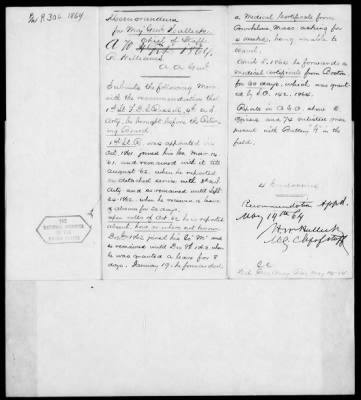 1864
Memorandum
for Maj. Genl. Halleck
Chief of Staff
1864.
R Williams
A. A. Genl.
Submits the following Memo.
with the recommendation that
1st Lt
Arty. be brought before the Retir-
ing Board.
1st Lt. R. was appointed in
Oct. 1861, joined his Co. Nov. 14
61. and remained with it till
August 62. when he reported
on detached service with
Arty. and so remained until Sept.
24. 1862. when he received a leave
of absence for 20 days.
rolls of Oct. 62 he is reported
absent,
Dec. 1862, joined his Co. and
so remained until Dec. 1863, when
he was granted a leave for 8
days. January 19, he forwarded
a Medical Certificate from
Brookline, Mass. asking for
being unable to
travel.
1864 he forwarded a
medical certificate from Boston
for 20 days, which was grant-
ed by S.O. 152. 1864.
Reports in A.G.O. show 2
Officers and 74 enlisted men
present with Battery in the
field.
4 Enclosures
Recommendation Appd.
May 14th 64
H W Halleck
M.G. Chf of Staff
THE
NATIONAL ARCHIVES
OF THE
UNITED STATES